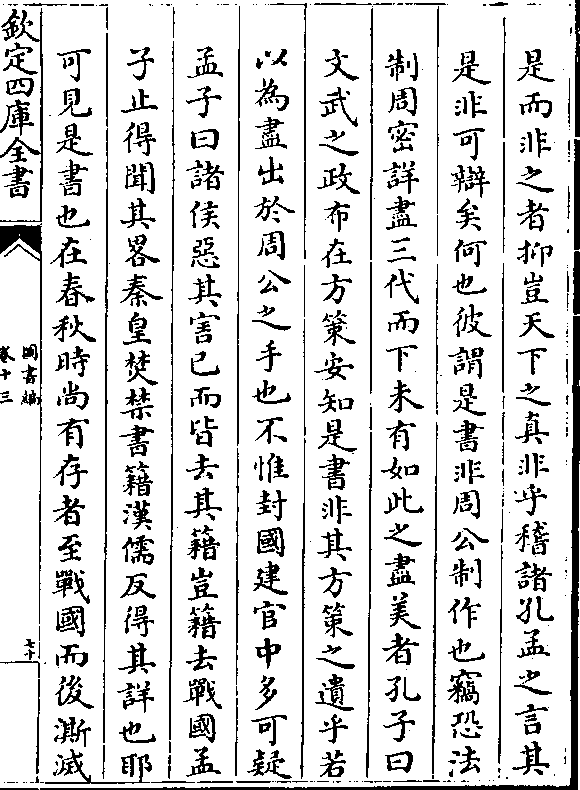 是而非之者抑豈天下之真非乎稽諸孔孟之言其
是非可辯矣何也彼謂是書非周公制作也竊恐法
制周密詳盡三代而下未有如此之盡美者孔子曰
文武之政布在方策安知是書非其方策之遺乎若
以為盡出於周公之手也不惟封國建官中多可疑
孟子曰諸侯惡其害已而皆去其籍豈籍去戰國孟
子止得聞其畧秦皇焚禁書籍漢儒反得其詳也耶
可見是書也在春秋時尚有存者至戰國而後澌滅
欽定四庫全書
圖書編
卷十三
七十